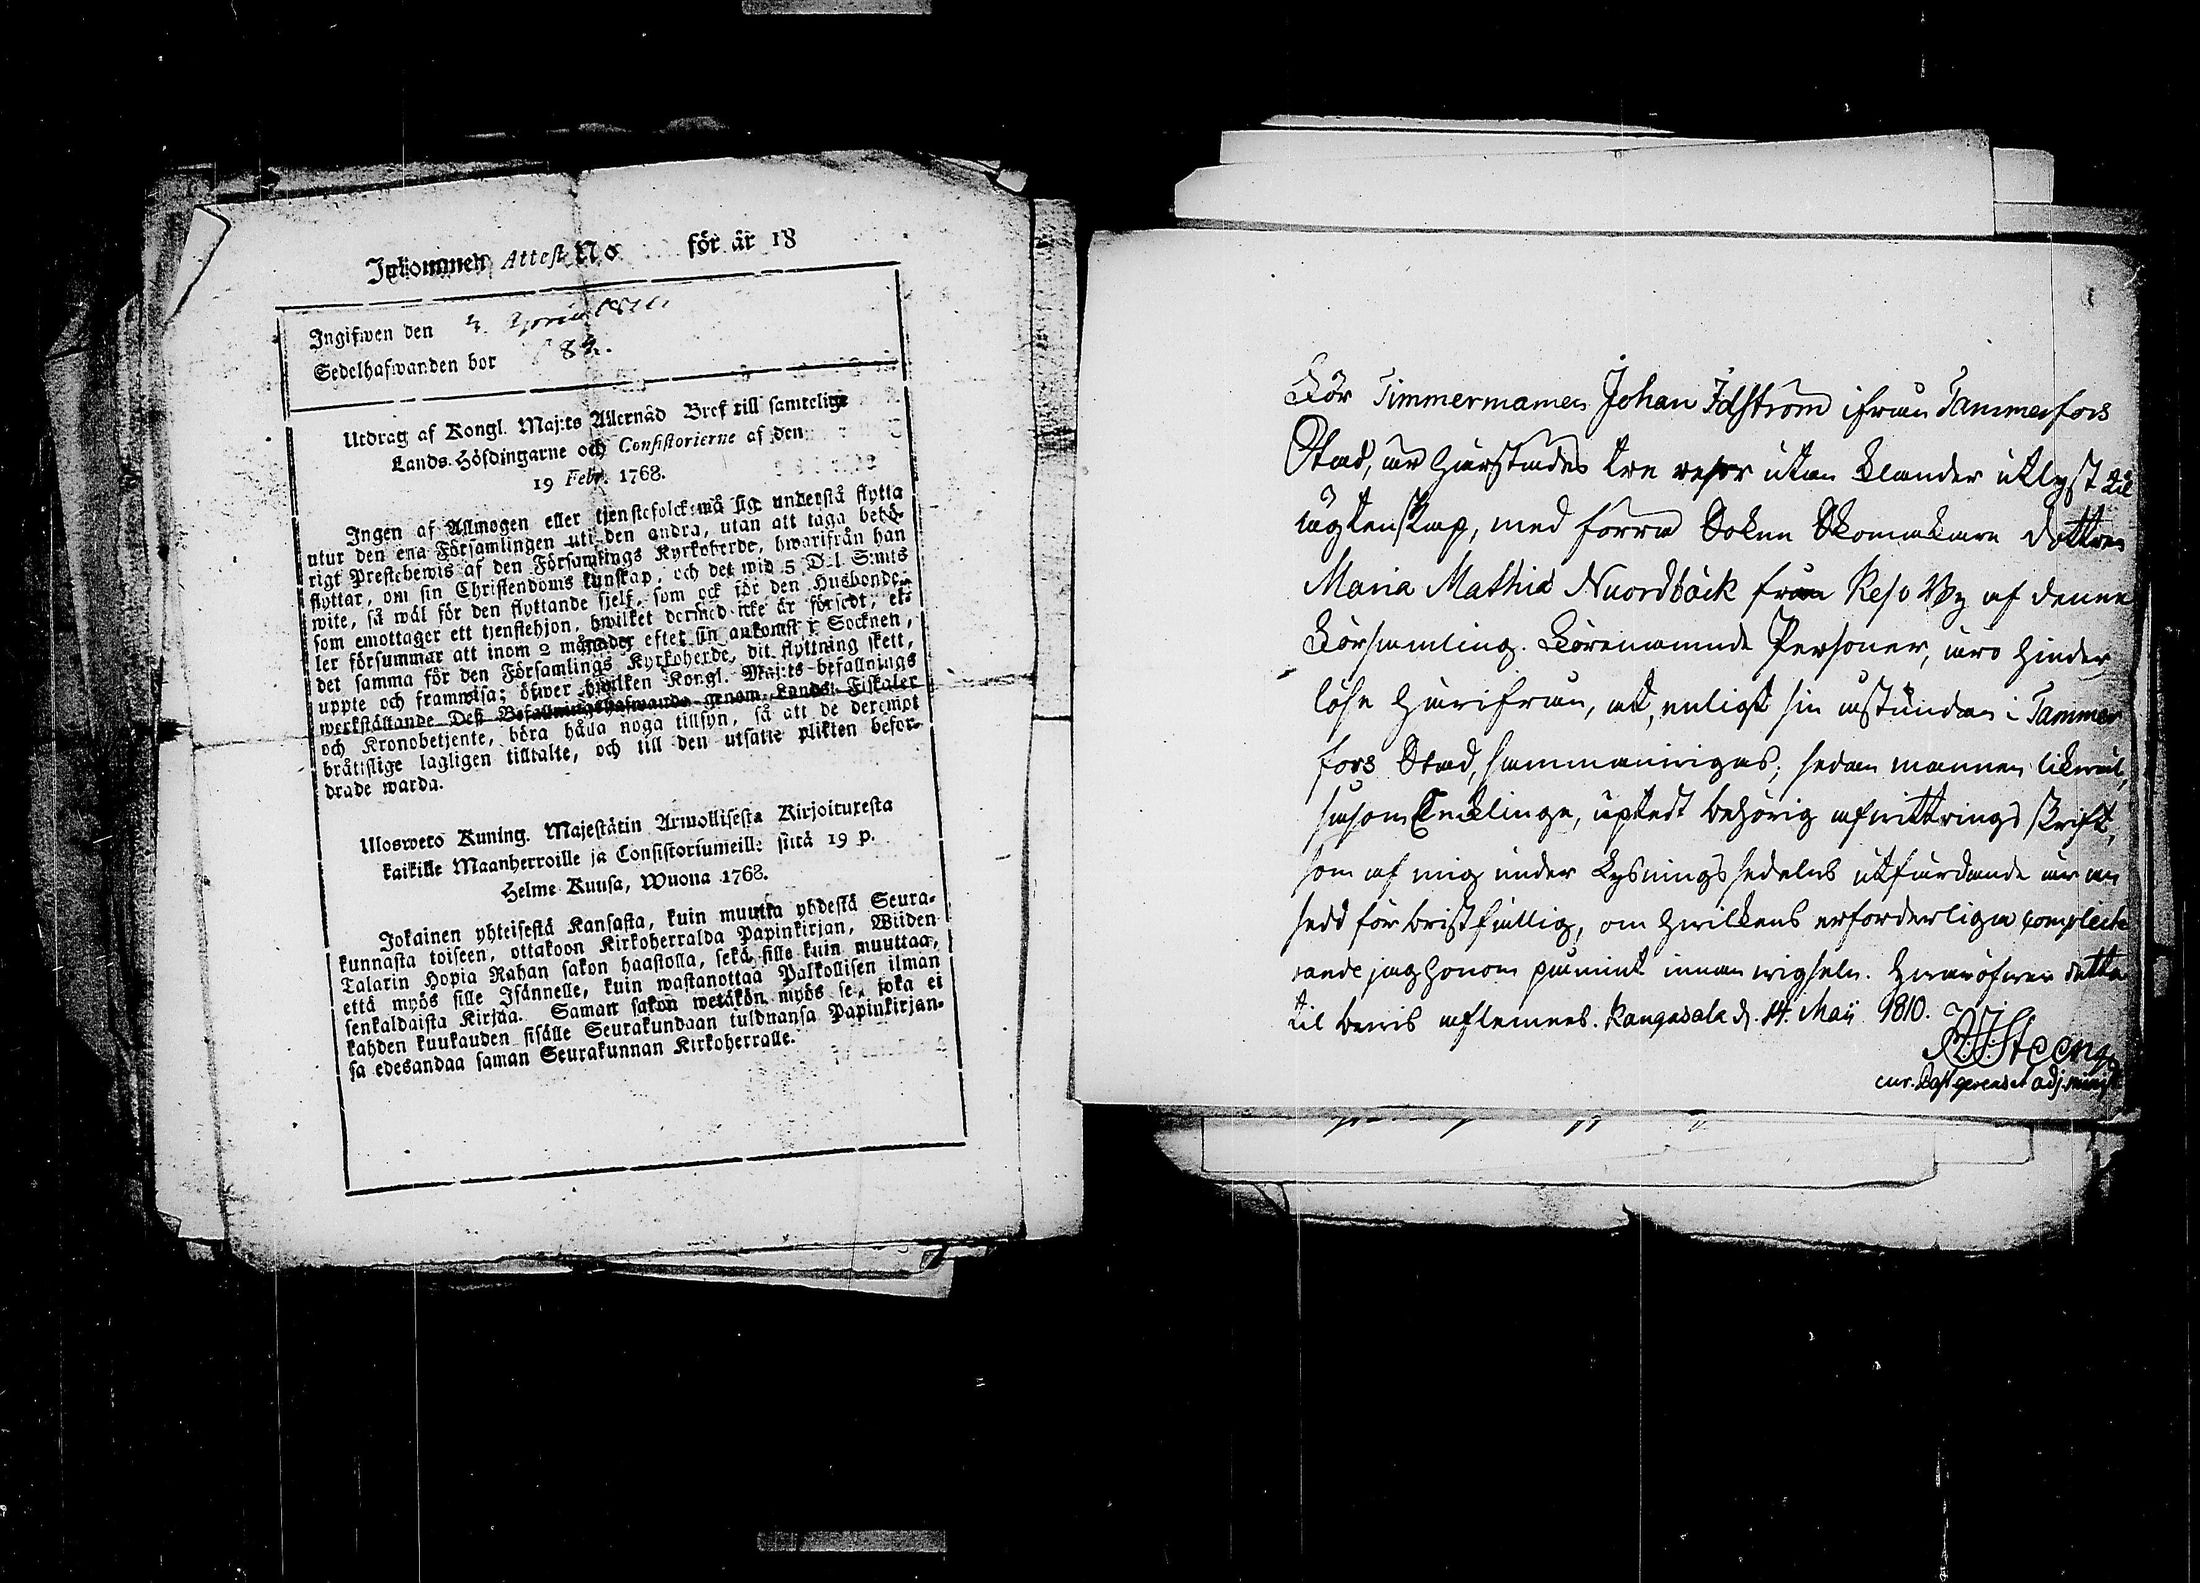 Inkommen Attest No för år 18
Ingifwen den 4. April 1811.
Sedelhafwanden bor 84.
Utdrag af Kongl. Maj:ts Allernåd Bref till samtelige
Lands-Höfdingarne och Consistorierne af den
19 Febr. 1768.
Ingen af Allmogen eller tjenstefolck må sig understå flytta
utur den ena Församlingen uti den andra, utan att taga behö-
rigt Prestebewis af den Församlings Kyrkoherde, hwarifrån han
flyttar, om sin Christendoms kunskap, och det wid 5 D:l S:mts
wite, så wäl för den flyttande sjelf, som ock för den Husbonde,
som emottager ett tjenstehjon, hwilket dermed icke är försedt, el-
ler försummar att inom 2 månader efter sin ankomst i Socknen,
det samma för den Församlings Kyrkoherde, dit flyttning skett,
uppte och framwisa; öfwer hwilken Kongl. Maj:ts befallnings
werkställande Dess Befallningshafwande genom Lands-Fiskaler
och Kronobetjente, böra hålla noga tillsyn, så att de deremot
bråttslige lagligen tilltalte, och till den utsatte plikten befor-
drade warda.
Uloswero Kuning. Majestätin Armollisesta Kirjoituresta
kaikille Maanherroille ja Consistoriumeille siitä 19 p.
Helme Kuusa, Wuona 1768.
Jokainen yhteisestä Kansasta, kuin muutta yhdestä Seura-
kunnasta toiseen, ottakoon Kirkoherralda Papinkirjan, Wiiden
Talarin Hopia Rahan sakon haastolla, sekä sille kuin muuttaa,
että myös sille Isännelle, kuin wastanottaa Palkollisen ilman
senkaldaista Kirjaa. Saman sakon wetäkön myös se, joka ei
kahden kuukauden sisälle Seurakundaan tulduansa Papinkirjan-
sa edesandaa saman Seurakunnan Kirkoherralle.
För Timmermannen Johan Idström ifrån Tammerfors
Stad, är härstädes tre resor utan klander utlyst til
ägtenskap, med förra Sokne Skomakare dottren
Maria Mathia Nuordbäck från Reso By af denne
Församling. Förenämnde Personer, äro hinder
löse härifrån, at, enligt sin åstundan i Tammer
fors Stad, sammanvigas; sedan mannen likväl,
såsom Enklinge, uptedt behörig afvittrings skrift,
som af mig under Lysningssedelns utfärdande är an
sedd för bristfällig, om hvilkens erforderliga complette
rande jag honom påmint innan vigseln. Hvaröfwer detta
til bewis aflemnes. Kangasala d. 14. Maij 1810.
Steeng
cur. Past gerens et adj. minist